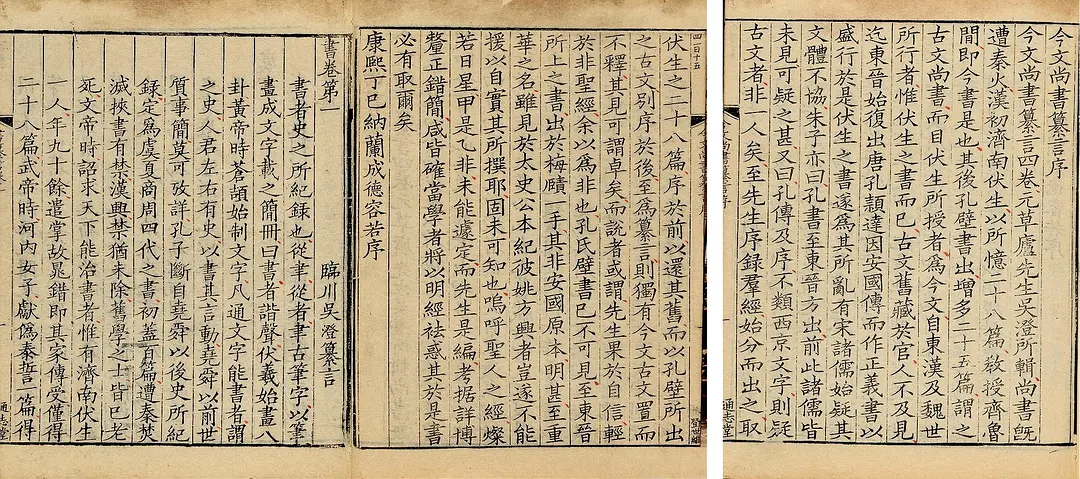 今文尚書纂言序
今文尚書纂言四卷元草廬先生吳澄所輯尚書旣
遭秦火漢初濟南伏生以所憶二十八篇敎授齊魯
間即今書是也其後孔壁書出增多二十五篇謂之
古文尚書而目伏生所授者爲今文自東漢及魏世
所行者惟伏生之書而已古文舊藏於官人不及見
迄東晉始復出唐孔頴達因安國傳而作正義書以
盛行於是伏生之書遂爲其所亂有宋諸儒始疑其
文體不協朱子亦曰孔書至東晉方出前此諸儒皆
未見可疑之甚又曰孔傳及序不類西京文字則疑
古文者非一人矣至先生序録羣經始分而出之取
通志堂
四百十五
伏生之二十八篇序於前以還其舊而以孔壁所出
之古文別序於後至爲纂言則獨有今文古文置而
不釋其見可謂卓矣而說者或謂先生果於自信輕
於非聖經余以爲非也孔氏壁書已不可見至東晉
所上之書出於梅賾一手其非安國原本明甚至重
華之名雖見於太史公本紀彼姚方興者豈遂不能
援以自實其所撰耶固未可知也嗚呼聖人之經燦
若日星甲是乙非未能遽定而先生是編考据詳博
釐正錯簡咸皆確當學者將以明經祛惑其於是書
必有取爾矣
康熙丁巳納蘭成德容若序
書卷第一
臨川吳澄纂言
書者史之所紀録也從聿從者聿古筆字以筆
畫成文字載之簡冊曰書者諧聲伏羲始畫八
卦黃帝時蒼頡始制文字凡通文字能書者謂
之史人君左右有史以書其言動堯舜以前世
質事簡莫可攷詳孔子斷自堯舜以後史所紀
録定爲虞夏商周四代之書初蓋百篇遭秦焚
滅挾書有禁漢興禁猶未除舊學之士皆已老
死文帝時詔求天下能治書者惟有濟南伏生
一人年九十餘遣掌故晁錯即其家傳受僅得
二十八篇武帝時河内女子獻偽泰誓一篇得
通志堂